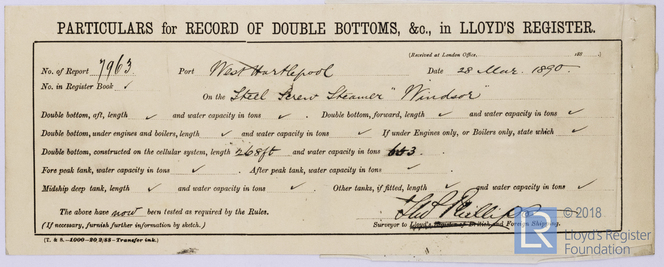 PARTICULARS for RECORD OF DOUBLE BOTTOMS, &c., in LLOYD'S REGISTER.
(Received at London Office, 188 .)
No. of Report 7963 Port West Hartlepool Date 28 Mar. 1890.
No. in Register Book ✓
On the Steel Screw Steamer "Windsor"
Double bottom, aft, length ✓ and water capacity in tons ✓ . Double bottom, forward, length ✓ and water capacity in tons ✓
Double bottom, under engines and boilers, length ✓ and water capacity in tons ✓ If under Engines only, or Boilers only, state which ✓
Double bottom, constructed on the cellular system, length 268ft and water capacity in tons 3.
Fore peak tank, water capacity in tons ✓ . After peak tank, water capacity in tons ✓
Midship deep tank, length ✓ and water capacity in tons ✓ . Other tanks, if fitted, length ✓ and water capacity in tons ✓
The above have now been tested as required by the Rules.
Phillips
(If necessary, furnish further information by sketch.) Surveyor to Lloyd's Register of British and Foreign Shipping.
[T. & S.—1000—20/2/85—Transfer ink.]
LR © 2018
Lloyd's Register
Foundation